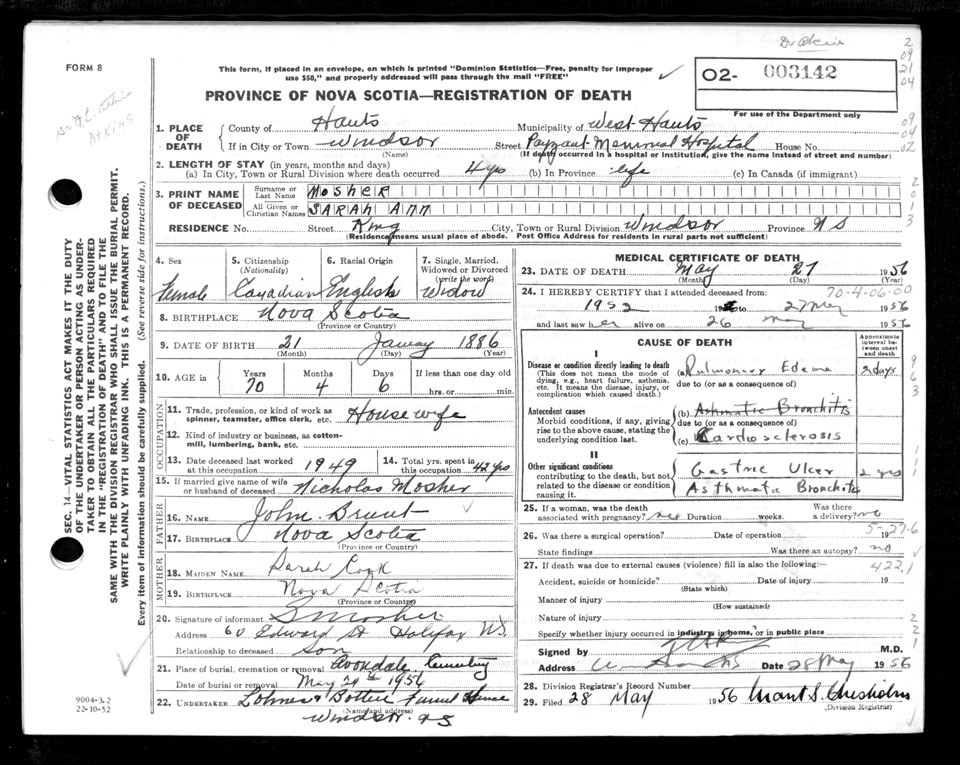 FORM 8
This form, if placed in an envelope, on which is printed "Dominion Statistics—Free, penalty for improper
use $50," and properly addressed will pass through the mail "FREE"
02- 003142
For use of the Department only
PROVINCE OF NOVA SCOTIA—REGISTRATION OF DEATH
ATKINS
1. PLACE OF DEATH
County of Hants Municipality of West Hants
If in City or Town Windsor Street Payzant Memorial Hospital House No.
(Name) (If death occurred in a hospital or institution, give the name instead of street and number)
2. LENGTH OF STAY (in years, months and days)
(a) In City, Town or Rural Division where death occurred 4 yrs (b) In Province life (c) In Canada (if immigrant)
3. PRINT NAME OF DECEASED
Surname or Last Name MOSHER
All Given or Christian Names SARAH ANN
RESIDENCE No. Street King City, Town or Rural Division Windsor Province N S
(Residence means usual place of abode. Post Office Address for residents in rural parts not sufficient)
4. Sex Female
5. Citizenship (Nationality) Canadian
6. Racial Origin English
7. Single, Married, Widowed or Divorced (write the word) Widow
8. BIRTHPLACE Nova Scotia
(Province or Country)
9. DATE OF BIRTH 21 1886
(Month) (Day) (Year)
10. AGE in Years 70 Months 4 Days 6 If less than one day old hrs. or min.
OCCUPATION
11. Trade, profession, or kind of work as spinner, teamster, office clerk, etc. Housewife
12. Kind of industry or business, as cotton-mill, lumbering, bank, etc.
13. Date deceased last worked at this occupation 1949
14. Total yrs. spent in this occupation 42 yrs
15. If married give name of wife or husband of deceased Nicholas Mosher
FATHER
16. NAME John Brunt
17. BIRTHPLACE Nova Scotia
(Province or Country)
MOTHER
18. MAIDEN NAME Sarah Cook
19. BIRTHPLACE Nova Scotia
(Province or Country)
20. Signature of informant S Mosher
Address 60 Edward St Halifax N.S.
Relationship to deceased Son
21. Place of burial, cremation or removal Avondale Cemetery
Date of burial or removal May 29th 1956
22. UNDERTAKER Funeral House
(Name and address)
Windsor. N S
MEDICAL CERTIFICATE OF DEATH
23. DATE OF DEATH May 27 1956
(Month) (Day)
24. I HEREBY CERTIFY that I attended deceased from: 70-4-06-00
1952 to 27 May 1956
and last saw her alive on 26 May 1956
CAUSE OF DEATH
Approximate interval between onset and death
I
Disease or condition directly leading to death
(This does not mean the mode of dying, e.g., heart failure, asthenia, etc. It means the disease, injury, or complication which caused death.)
(a) Pulmonary Edema 2 days
due to (or as a consequence of)
Antecedent causes
Morbid conditions, if any, giving rise to the above cause, stating the underlying condition last.
(b) Asthmatic Bronchitis
due to (or as a consequence of)
(c) Cardiosclerosis
II
Other significant conditions contributing to the death, but not related to the disease or condition causing it.
Gastric Ulcer 2 yrs
Asthmatic Bronchitis
25. If a woman, was the death associated with pregnancy? no Duration weeks. Was there a delivery? no
26. Was there a surgical operation? Date of operation 19
5-27-6
State findings Was there an autopsy? no
27. If death was due to external causes (violence) fill in also the following:—
422.1
Accident, suicide or homicide? Date of injury 19
(State which)
Manner of injury
(How sustained)
Nature of injury
Specify whether injury occurred in industry, in home, or in public place
Signed by M.D.
Address Date 28 May 1956
28. Division Registrar's Record Number
29. Filed 28 May 1956 Grant S. Chisholm
(Division Registrar)
SEC. 14—VITAL STATISTICS ACT MAKES IT THE DUTY
OF THE UNDERTAKER OR PERSON ACTING AS UNDER-
TAKER TO OBTAIN ALL THE PARTICULARS REQUIRED
IN THE "REGISTRATION OF DEATH" AND TO FILE THE
SAME WITH THE DIVISION REGISTRAR WHO SHALL ISSUE THE BURIAL PERMIT.
WRITE PLAINLY WITH UNFADING INK. THIS IS A PERMANENT RECORD.
Every item of information should be carefully supplied. (See reverse side for instructions.)
9004-3.2
22-10-52